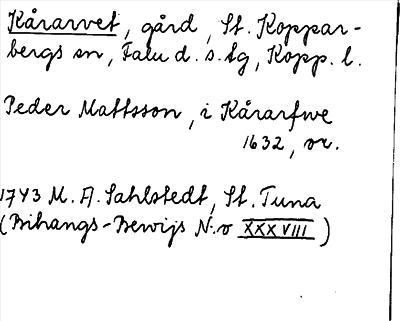 Kårarvet, gård, St. Koppar-
bergs sn, Falu d. s. lg, Kopp. l.
Peder Mattsson, i Kårarfwe
1632, or.
1743 M. A. Sahlstedt, St. Tuna
(Bihangs-Bewijs N:o XXXVIII)